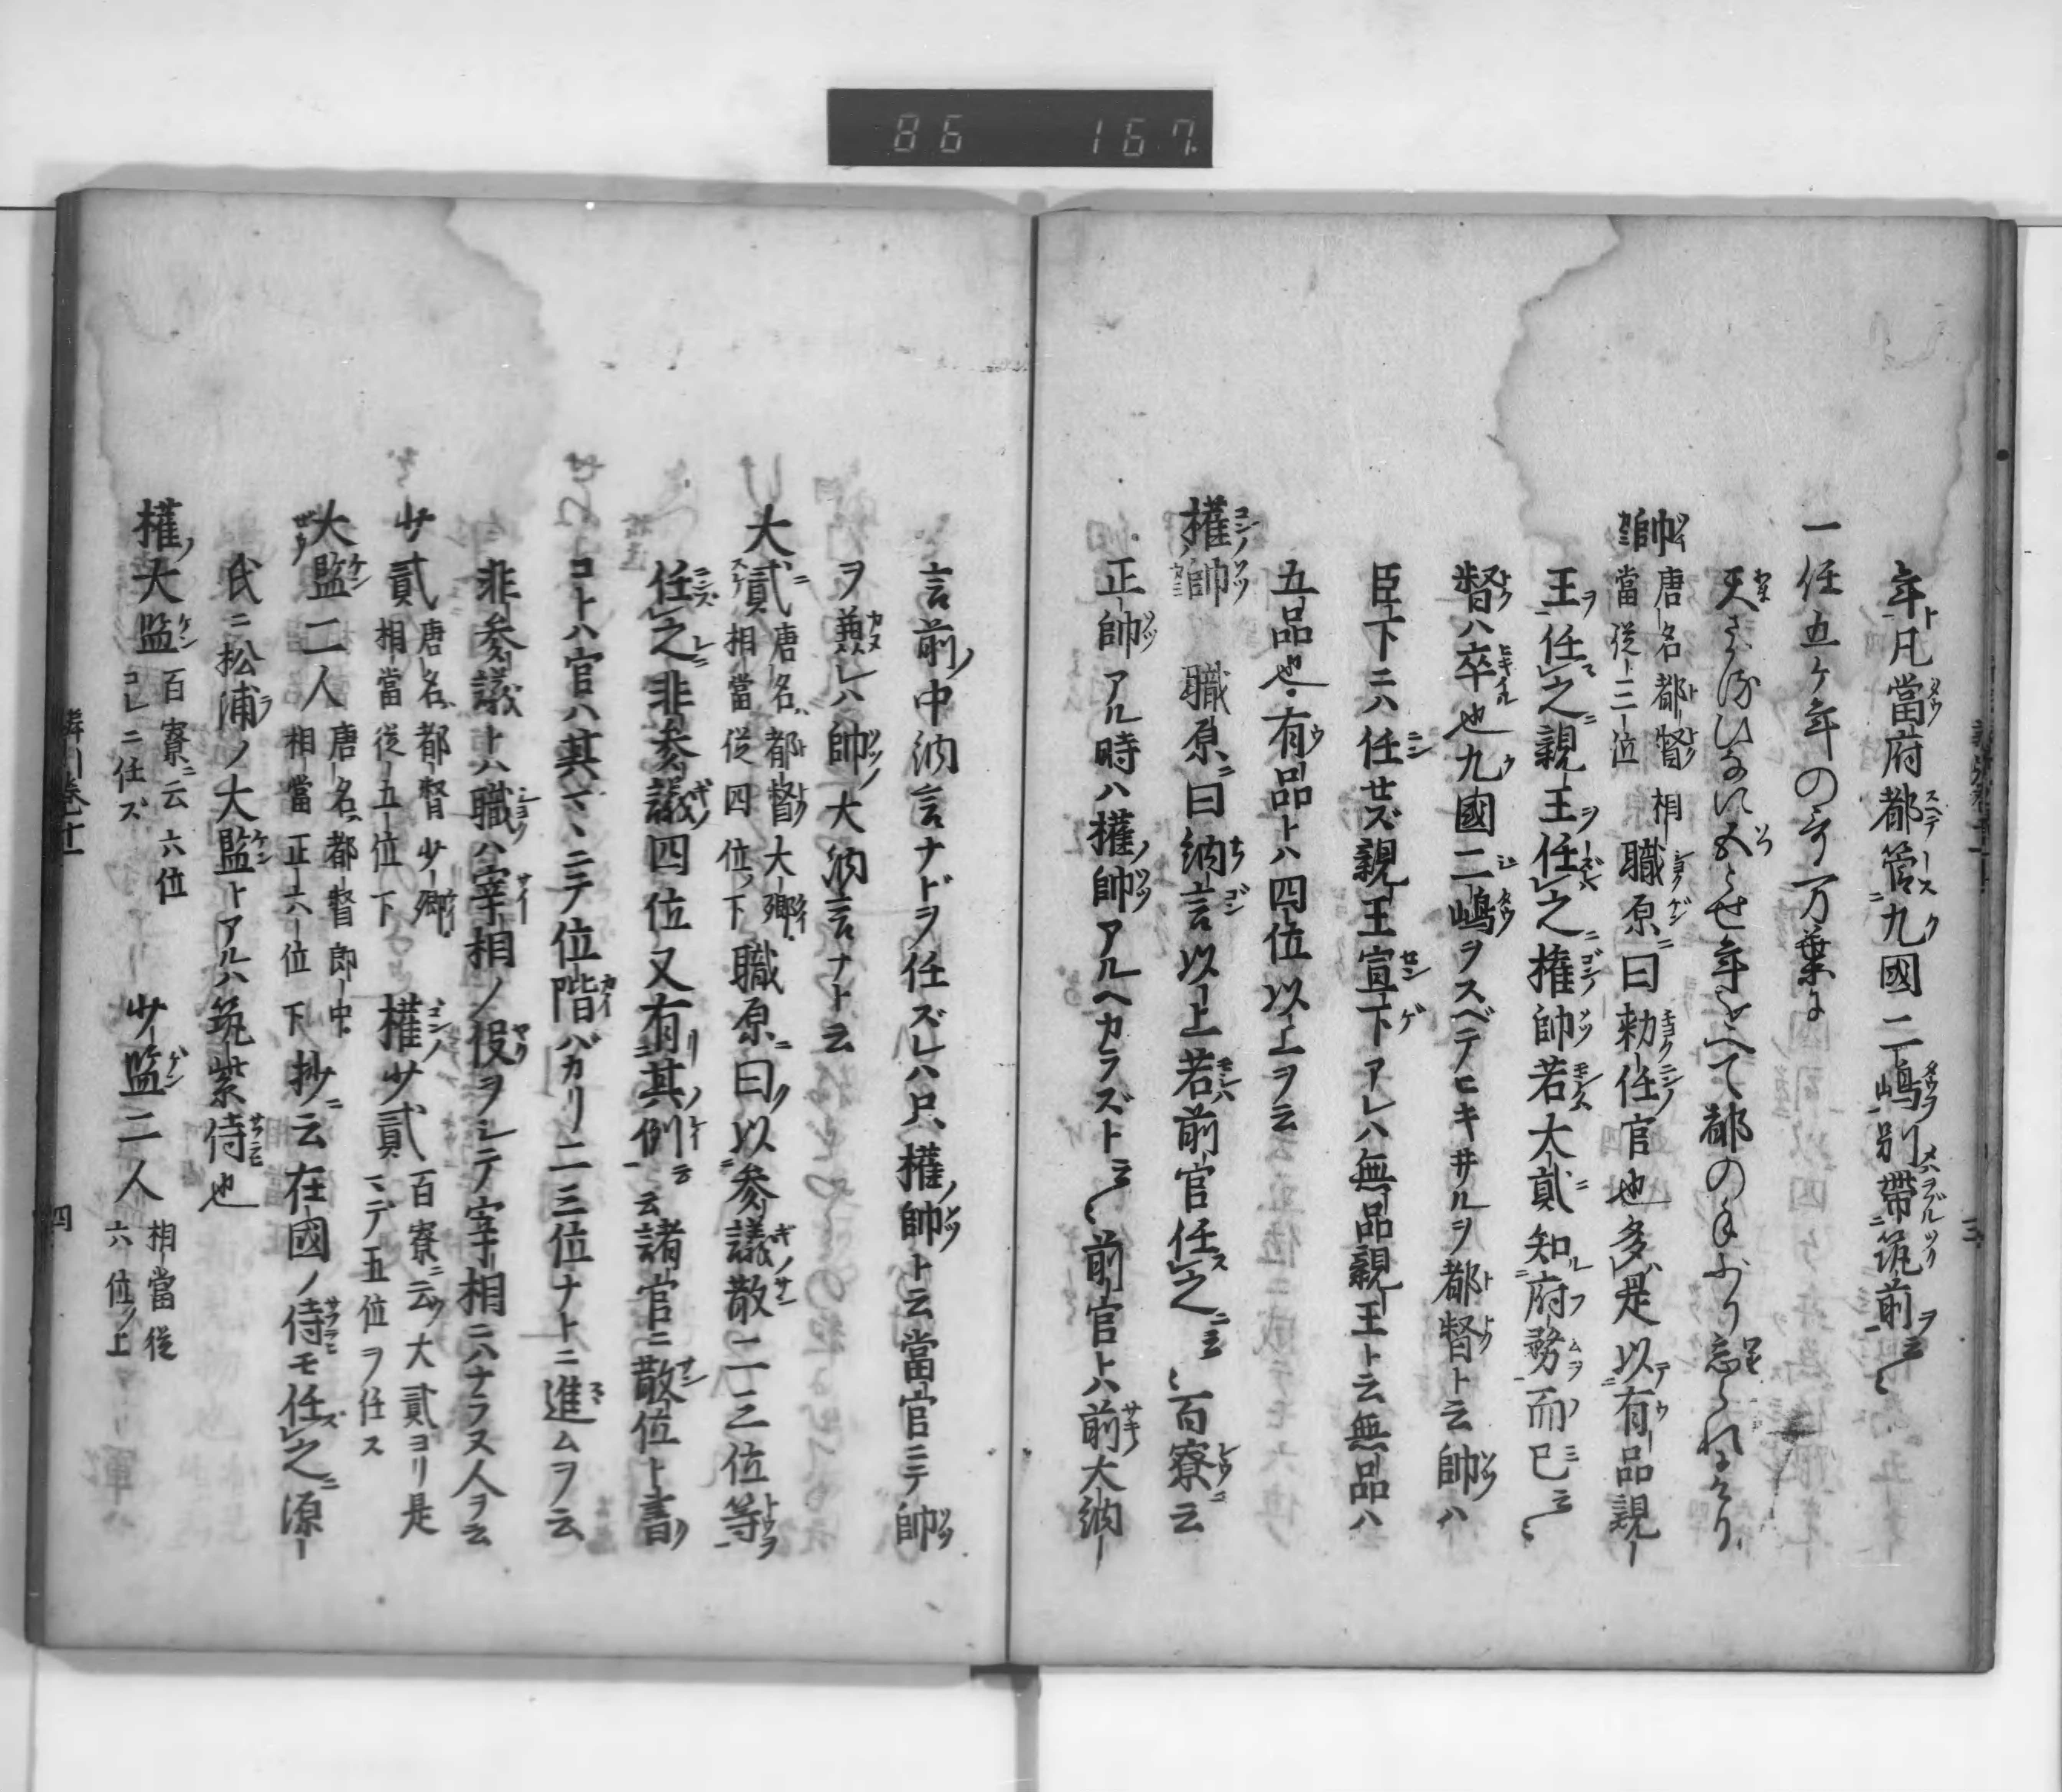 86 167
年凡當府都管九國二嶋別帶筑前云〻
一任五ケ年の㕝万葉に
天さかるひなに五とせ年をへて都の手ふり忘られにけり
帥 唐名都督 相當從三位 職原曰勅任官也多是以有品親
王任之親王任之權帥若大貳知府務而已云〻
督ハ卒也九國二嶋ヲスベテヒキ井ルヲ都督ト云帥ハ
臣下ニハ任セズ親王宣下アレハ無品親王ト云無品ハ
五品也有品トハ四位以上ヲ云
權帥 職原曰納言以上若前官任之云〻百寮云
正帥アル時ハ權帥アルヘカラズト云〻前官トハ前大納
言前中納言ナドヲ任ズレハ只權帥ト云當官ニテ帥
ヲ兼レハ帥大納言ナト云
大貳 唐名都督大卿 相當從四位下 職原曰以參議散二三位等
任之非參議四位又有其例云云諸官ニ散位ト書
コトハ官ハ其マヽニテ位階バカリ二三位ナトニ進ムヲ云
非參議トハ職ハ宰相ノ役ヲシテ宰相ニハナラヌ人ヲ云
少貳 唐名都督少卿 相當從五位下 權少貳 百寮云大貳ヨリ是マデ五位ヲ任ス
大監二人 唐名都督郎中 相當正六位下 抄云在國ノ侍モ任之源
氏ニ松浦ノ大監トアルハ筑紫侍也
權大監 百寮云六位コレニ任ズ 少監二人 相當從六位上
四